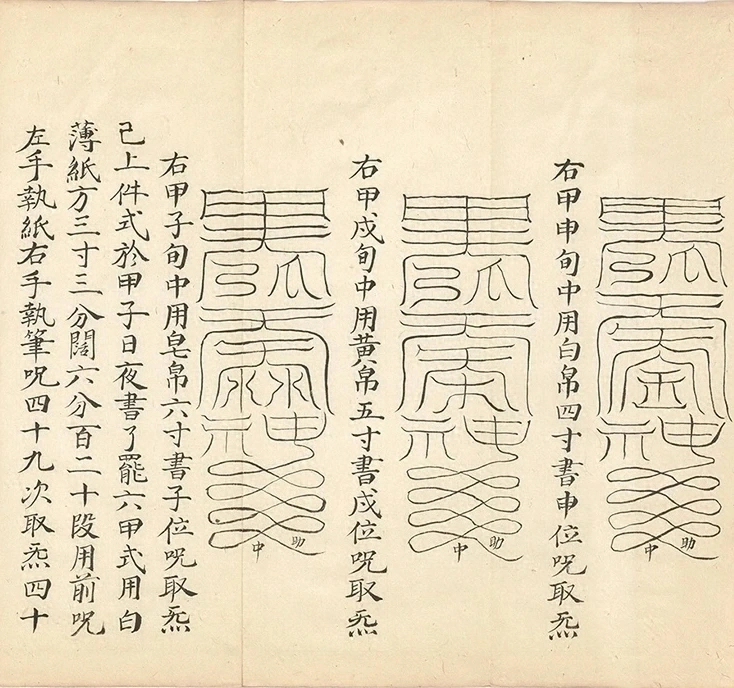 助
中
右甲申旬中用白帛四寸書申位咒取炁
助
中
右甲戍旬中用黃帛五寸書戍位咒取炁
助
中
右甲子旬中用皂帛六寸書子位咒取炁
已上件式於甲子日夜書了罷六甲式用白
薄紙方三寸三分闊六分百二十段用前咒
左手執紙右手執筆咒四十九次取炁四十